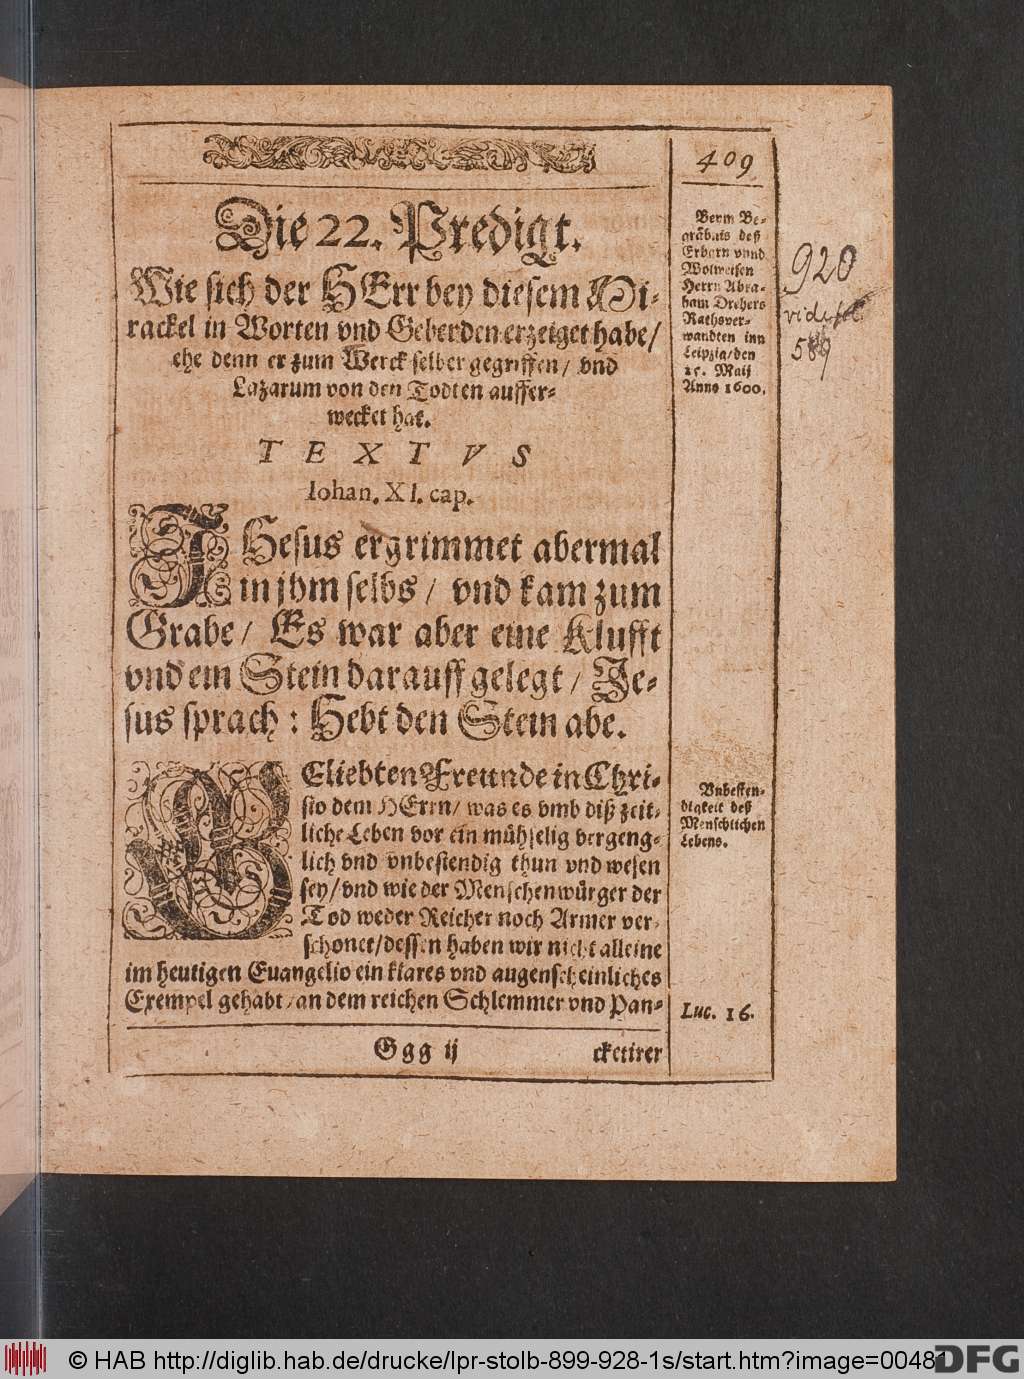 409
Die 22. Predigt.
Wie sich der HErr bey diesem Mi-
rackel in Worten vnd Geberden erzeiget habe/
ehe denn er zum Werck selber gegriffen/ vnd
Lazarum von den Todten auffer-
wecket hat.
TEXTVS
Iohan. XI. cap.
JHesus ergrimmet abermal
in jhm selbs/ vnd kam zum
Grabe/ Es war aber eine Klufft
vnd ein Stein darauff gelegt/ Je-
sus sprach: Hebt den Stein abe.
GEliebten Freunde in Chri-
sto dem HErrn/ was es vmb diß zeit-
liche Leben vor ein mühselig vergeng-
lich vnd vnbestendig thun vnd wesen
sey/ vnd wie der Menschenwürger der
Tod weder Reicher noch Armer ver-
schonet/ dessen haben wir nicht alleine
im heutigen Euangelio ein klares vnd augenscheinliches
Exempel gehabt/ an dem reichen Schlemmer vnd Pan-
Ggg ij
cketirer
Beym Be-
gräbnis deß
Erbarn vnnd
Wolweisen
Herrn Abra-
ham Drehers
Rathsver-
wandten inn
Leipzig/ den
15. Maij
Anno 1600.
Vnbesten-
digkeit deß
Menschlichen
Lebens.
Luc. 16.
920
589
© HAB http://diglib.hab.de/drucke/lpr-stolb-899-928-1s/start.htm?image=00481
DFG